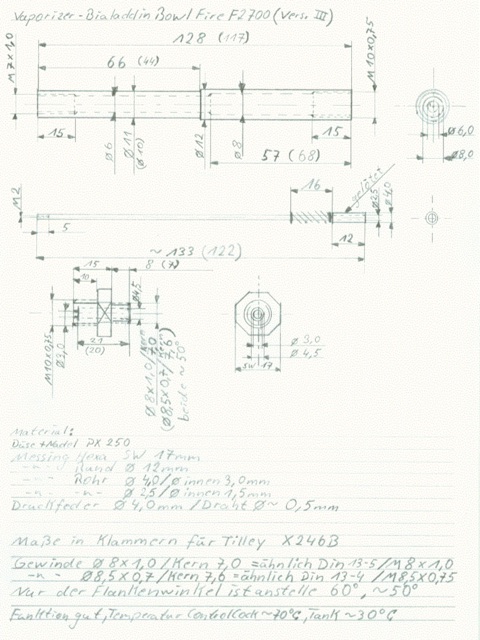 Vaporizer-Bialaddin Bowl Fire F2700 (Vers. III)
128 (117)
66 (44)
M7x1,0
M10x0,75
15
Ø6
Ø11
(Ø10)
Ø12
Ø8
15
57 (68)
Ø6,0
Ø8,0
M2
5
16
gelötet
Ø2,5
Ø4,0
12
~133 (122)
15
8 (7)
10
Ø4,5
M10x0,75
Ø3,0
21
(20)
Ø8x1,0/Kern 7,0
(Ø8,5x0,7/Kern 7,6)
beide ~50°
Ø3,0
Ø4,5
SW 17
Material:
Düse+Nadel PX 250
Messing Hexa SW 17mm
-"- Rund Ø 12mm
-"- Rohr Ø 4,0/Ø innen 3,0mm
-"- -"- Ø 2,5/Ø innen 1,5mm
Druckfeder Ø 4,0mm/Draht Ø~ 0,5mm
Maße in Klammern für Tilley X246B
Gewinde Ø8x1,0/Kern 7,0 =ähnlich Din 13-5/M8x1,0
-"- Ø8,5x0,7/Kern 7,6 =ähnlich Din 13-4 /M8,5x0,75
Nur der Flankenwinkel ist anstelle 60°, ~50°
Funktion gut, Temperatur ControlCock ~70°C, Tank ~30°C